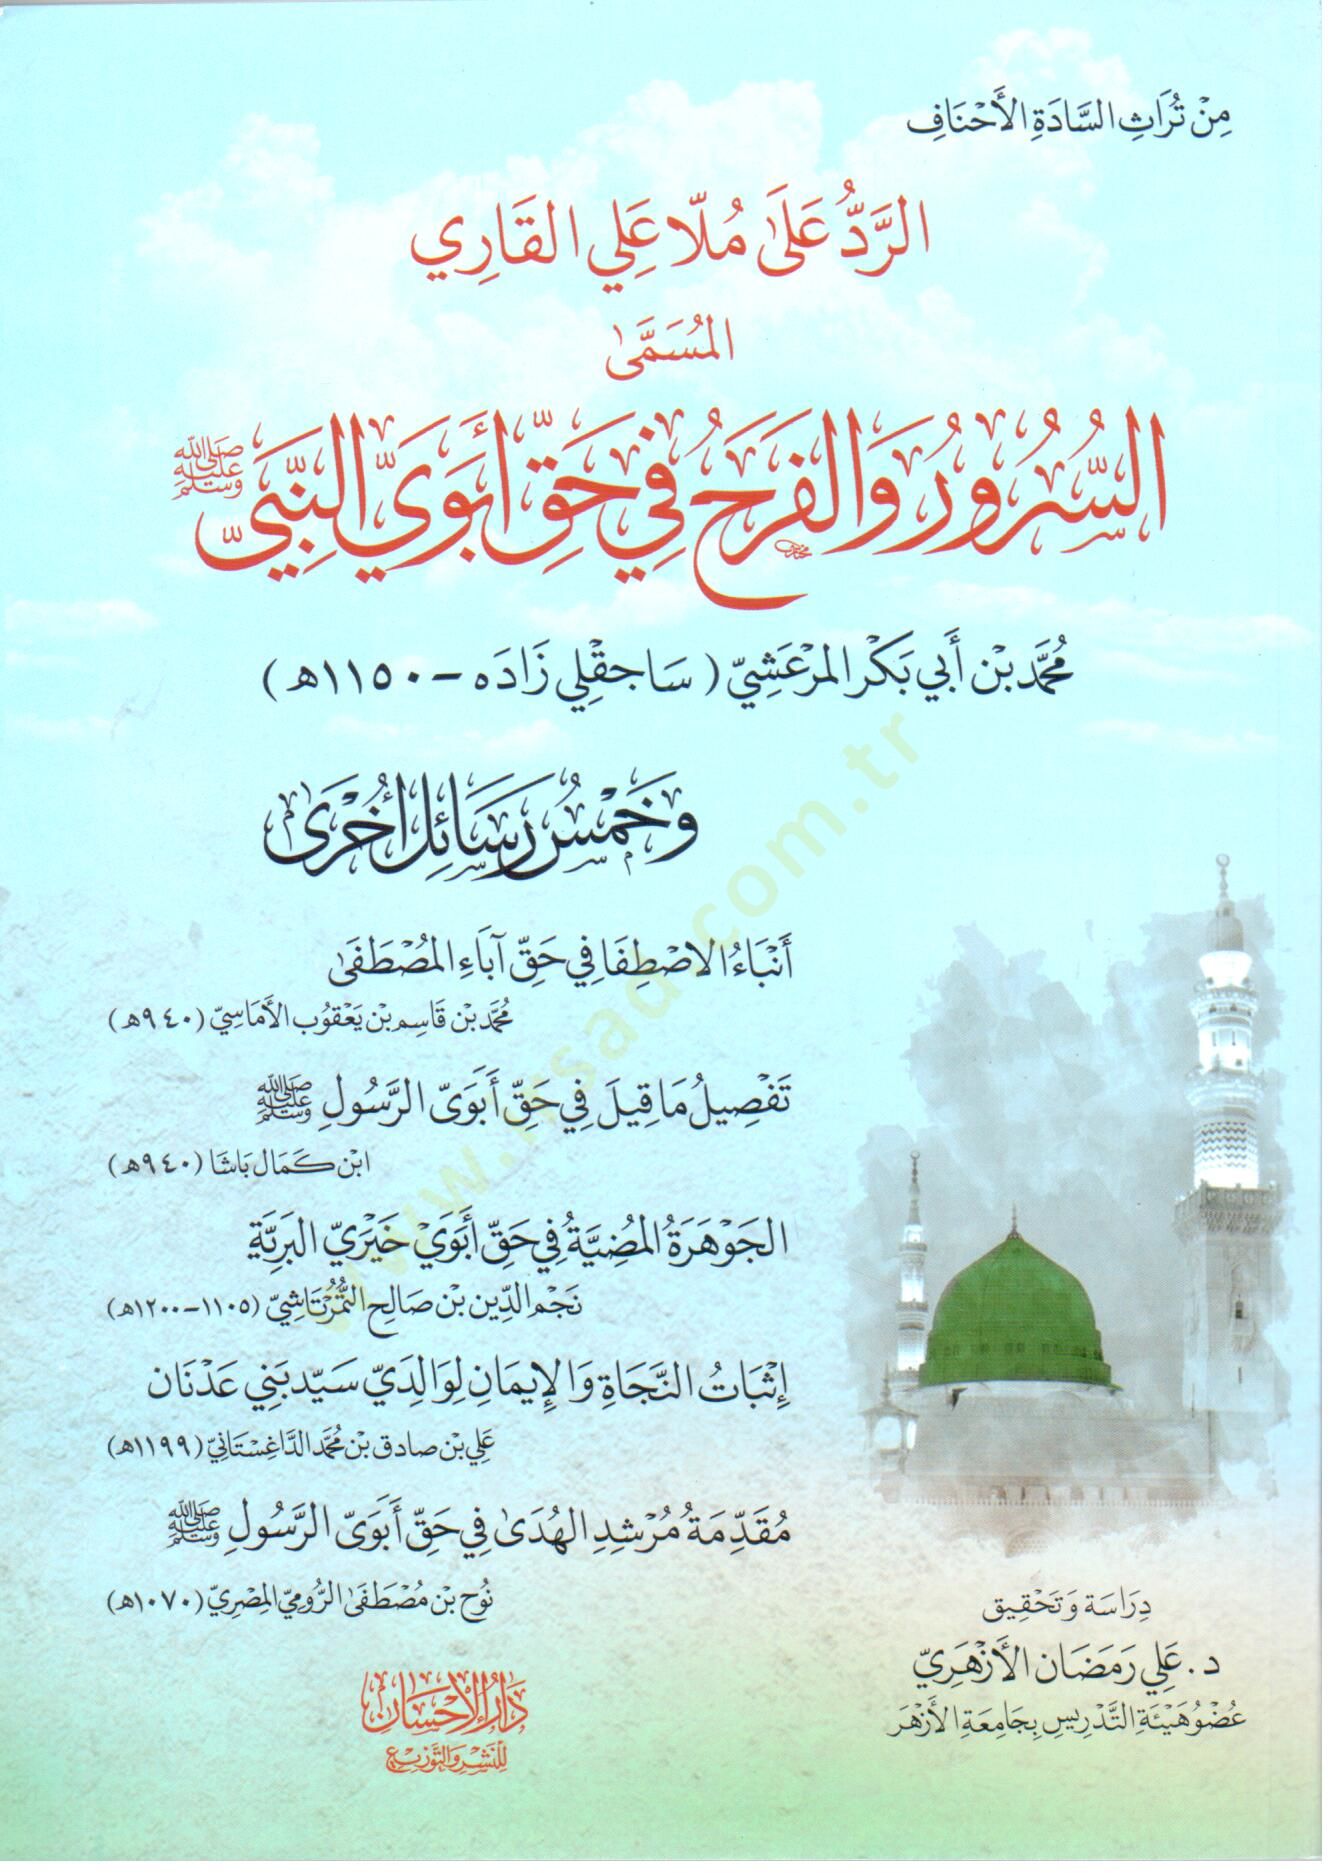 مِنْ تُرَاثِ السَّادَةِ الأَحْنَافِ
الرَّدُّ عَلَى مُلَّا عَلِي القَارِي
المُسَمَّى
السُّرُورُ وَالفَرَحُ فِي حَقِّ أَبَوَيِ النَّبِيِّ ﷺ
مُحَمَّد بْن أَبِي بَكْر المَرْعَشِيّ (سَاجقْلِي زَادَه - ١١٥٠هـ)
وَخَمْسُ رَسَائِل أُخْرَى
أَنْبَاءُ الاصْطِفَا فِي حَقِّ آبَاءِ المُصْطَفَى
مُحَمَّد بْن قَاسِم بْن يَعْقُوب الأَمَاسِيّ (٩٤٠هـ)
تَفْصِيلُ مَا قِيلَ فِي حَقِّ أَبَوَيِ الرَّسُولِ ﷺ
ابْن كَمَال بَاشَا (٩٤٠هـ)
الجَوْهَرَةُ المُضِيَّةُ فِي حَقِّ أَبَوَيْ خَيْرِيِ البَرِيَّةِ
نَجْم الدِّين بْن صَالِح التُّمُرْتَاشِيّ (١١٠٥-١٢٠٠هـ)
إِثْبَاتُ النَّجَاةِ وَالإِيمَانِ لِوَالِدَيْ سَيِّد بَنِي عَدْنَان
عَلِي بْن صَادِق بْن مُحَمَّد الدَّاغِسْتَانِيّ (١١٩٩هـ)
مُقَدِّمَةُ مُرْشِدِ الهُدَى فِي حَقِّ أَبَوَيِ الرَّسُولِ ﷺ
نُوح بْن مُصْطَفَى الرُّومِيّ المِصْرِيّ (١٠٧٠هـ)
دِرَاسَة وَتَحْقِيق
د. عَلِي رَمَضَان الأَزْهَرِيّ
عُضْو هَيْئَةِ التَّدْرِيسِ بِجَامِعَةِ الأَزْهَر
دَارُ الإِحْسَان
لِلنَّشْرِ وَالتَّوْزِيعِ